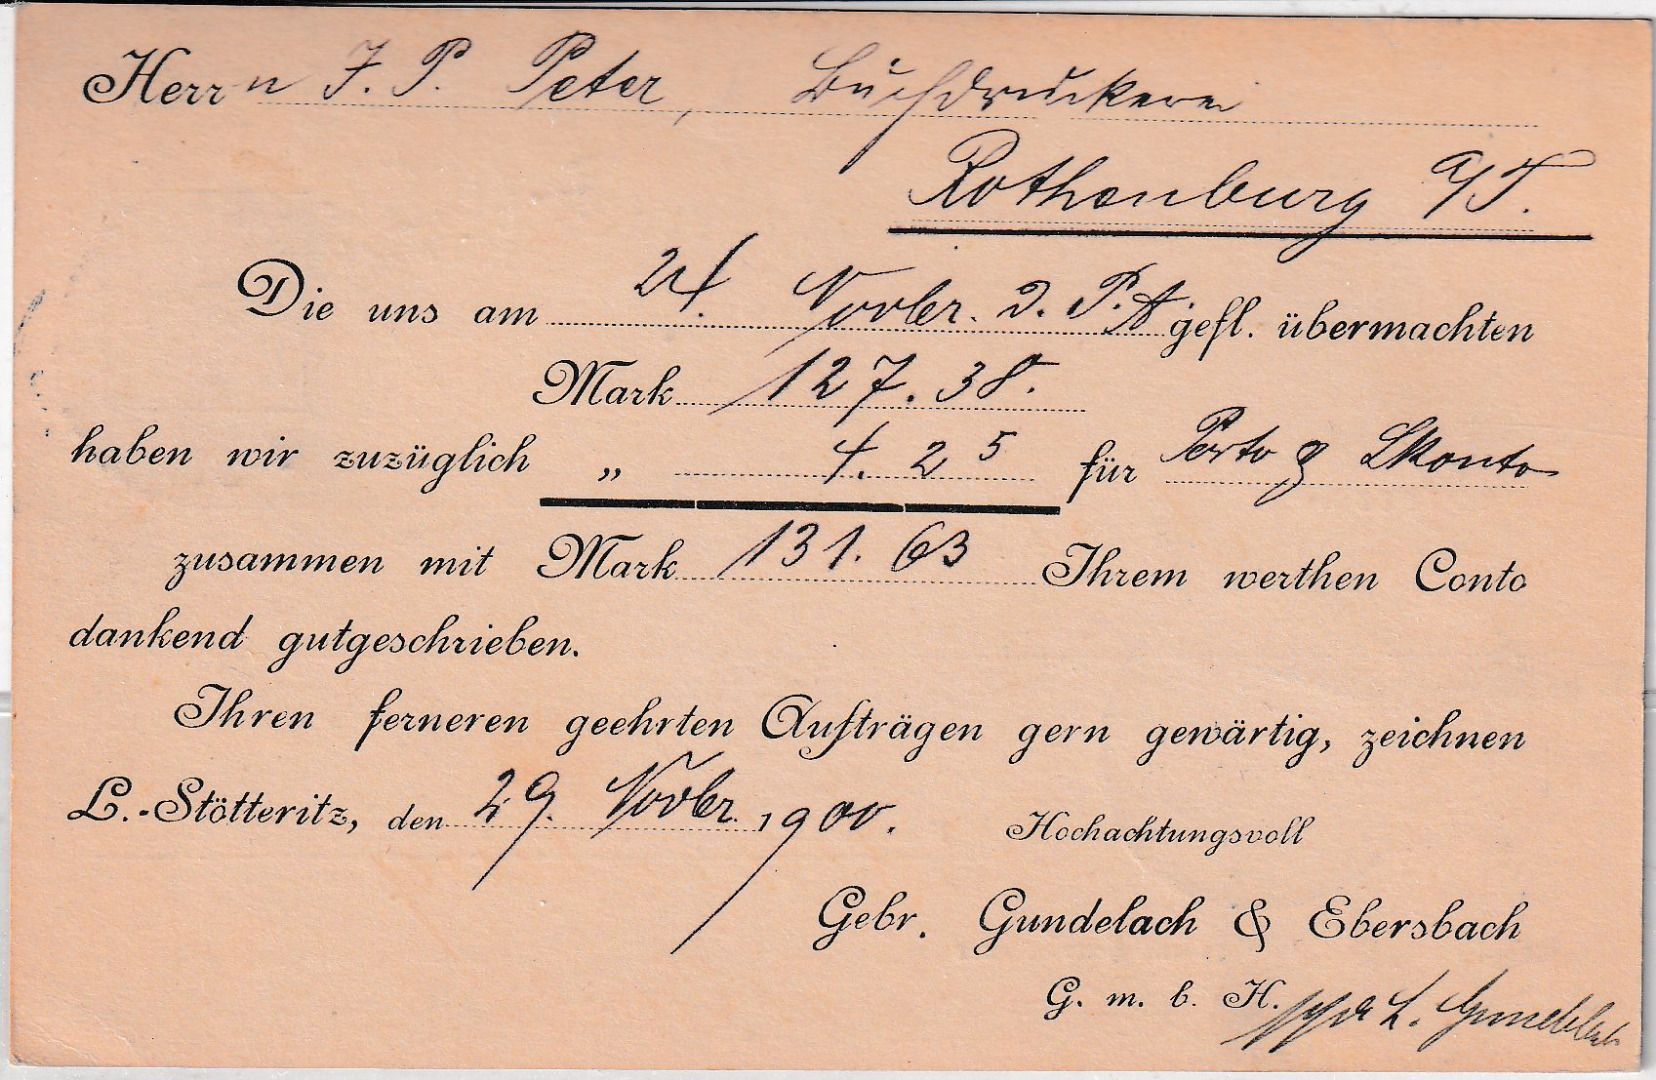 Herrn J. P. Peter, Buchdruckerei
Rothenburg a/T.
Die uns am 24. Novbr. d. P. A. gefl. übermachten
Mark 127.38.
haben wir zuzüglich „ 4.25 für Porto & Skonto
zusammen mit Mark 131.63 Ihrem werthen Conto
dankend gutgeschrieben.
Ihren ferneren geehrten Aufträgen gern gewärtig, zeichnen
L.-Stötteritz, den 29. Novbr. 1900.
Hochachtungsvoll
Gebr. Gundelach & Ebersbach
G. m. b. H.
ppa L. Gundelach